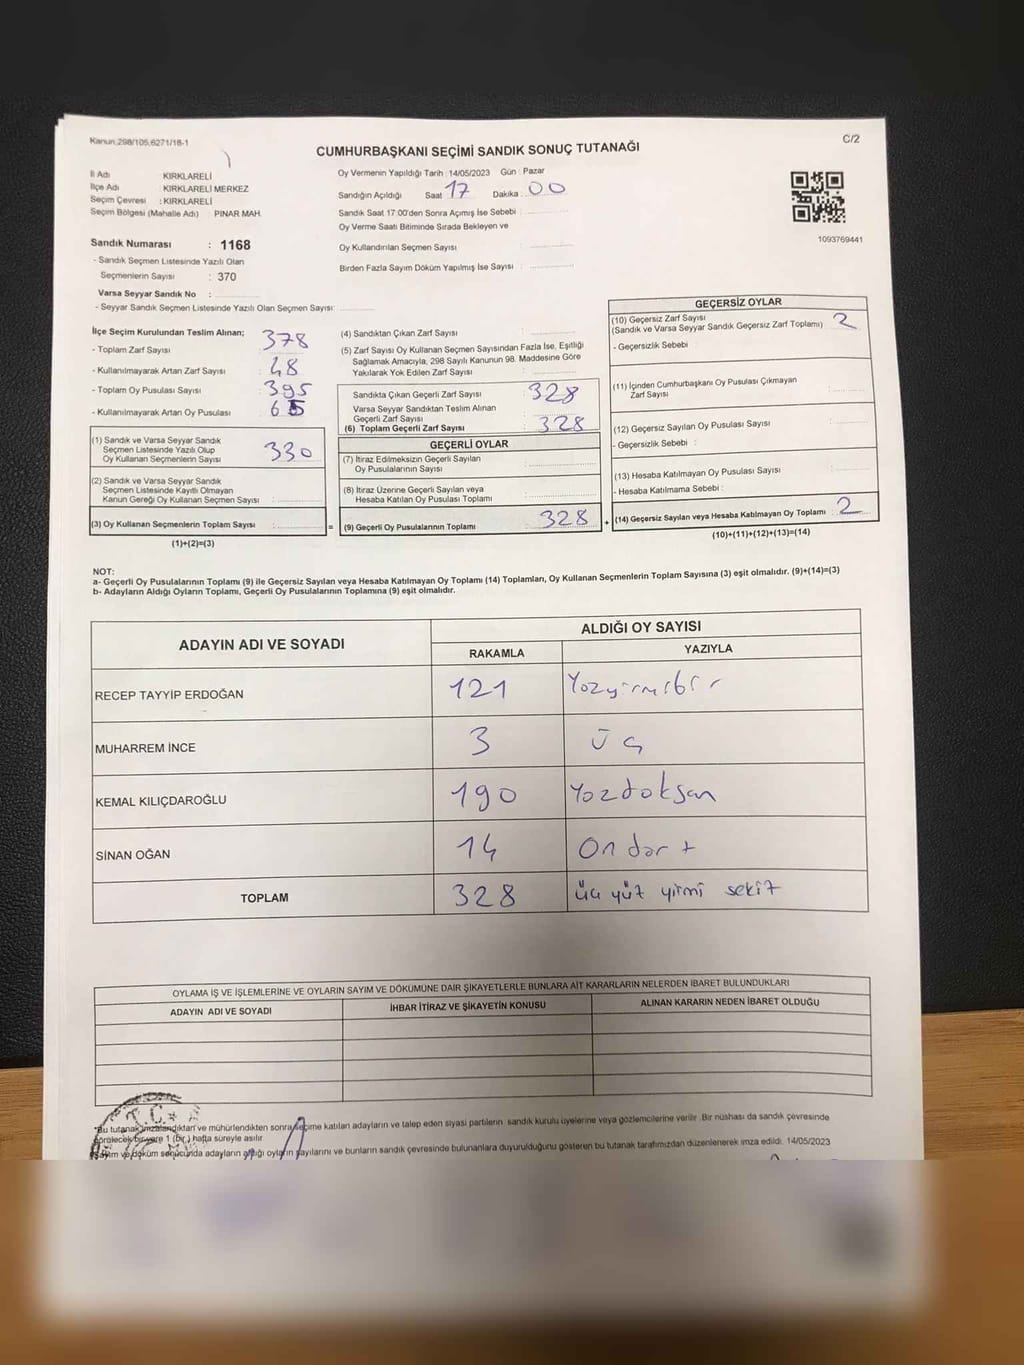 Kanun,298/105,6271/18-1
C/2
CUMHURBAŞKANI SEÇİMİ SANDIK SONUÇ TUTANAĞI
İl Adı KIRKLARELİ
İlçe Adı : KIRKLARELİ MERKEZ
Seçim Çevresi : KIRKLARELİ
Seçim Bölgesi (Mahalle Adı) PINAR MAH.
Sandık Numarası : 1168
- Sandık Seçmen Listesinde Yazılı Olan
Seçmenlerin Sayısı : 370
Varsa Seyyar Sandık No :
- Seyyar Sandık Seçmen Listesinde Yazılı Olan Seçmen Sayısı:
Oy Vermenin Yapıldığı Tarih : 14/05/2023 Gün : Pazar
Sandığın Açıldığı Saat 17 Dakika : 00
Sandık Saat 17:00'den Sonra Açımış İse Sebebi :
Oy Verme Saati Bitiminde Sırada Bekleyen ve
Oy Kullandırılan Seçmen Sayısı :
Birden Fazla Sayım Döküm Yapılmış İse Sayısı :
1093769441
İlçe Seçim Kurulundan Teslim Alınan;
- Toplam Zarf Sayısı : 378
- Kullanılmayarak Artan Zarf Sayısı : 48
- Toplam Oy Pusulası Sayısı : 395
- Kullanılmayarak Artan Oy Pusulası : 65
(1) Sandık ve Varsa Seyyar Sandık
Seçmen Listesinde Yazılı Olup
Oy Kullanan Seçmenlerin Sayısı : 330
(2) Sandık ve Varsa Seyyar Sandık
Seçmen Listesinde Kayıtlı Olmayan
Kanun Gereği Oy Kullanan Seçmen Sayısı :
(3) Oy Kullanan Seçmenlerin Toplam Sayısı :
(1)+(2)=(3)
=
(4) Sandıktan Çıkan Zarf Sayısı :
(5) Zarf Sayısı Oy Kullanan Seçmen Sayısından Fazla İse, Eşitliği
Sağlamak Amacıyla, 298 Sayılı Kanunun 98. Maddesine Göre
Yakılarak Yok Edilen Zarf Sayısı :
Sandıkta Çıkan Geçerli Zarf Sayısı : 328
Varsa Seyyar Sandıktan Teslim Alınan
Geçerli Zarf Sayısı :
(6) Toplam Geçerli Zarf Sayısı : 328
GEÇERLİ OYLAR
(7) İtiraz Edilmeksizin Geçerli Sayılan
Oy Pusulalarının Sayısı :
(8) İtiraz Üzerine Geçerli Sayılan veya
Hesaba Katılan Oy Pusulası Toplamı :
(9) Geçerli Oy Pusulalarının Toplamı : 328
+
GEÇERSİZ OYLAR
(10) Geçersiz Zarf Sayısı : 2
(Sandık ve Varsa Seyyar Sandık Geçersiz Zarf Toplamı)
- Geçersizlik Sebebi
(11) İçinden Cumhurbaşkanı Oy Pusulası Çıkmayan
Zarf Sayısı :
(12) Geçersiz Sayılan Oy Pusulası Sayısı :
- Geçersizlik Sebebi :
(13) Hesaba Katılmayan Oy Pusulası Sayısı :
- Hesaba Katılmama Sebebi :
(14) Geçersiz Sayılan veya Hesaba Katılmayan Oy Toplamı : 2
(10)+(11)+(12)+(13)=(14)
NOT:
a- Geçerli Oy Pusulalarının Toplamı (9) ile Geçersiz Sayılan veya Hesaba Katılmayan Oy Toplamı (14) Toplamları, Oy Kullanan Seçmenlerin Toplam Sayısına (3) eşit olmalıdır. (9)+(14)=(3)
b- Adayların Aldığı Oyların Toplamı, Geçerli Oy Pusulalarının Toplamına (9) eşit olmalıdır.
ADAYIN ADI VE SOYADI ALDIĞI OY SAYISI
RAKAMLA YAZIYLA
RECEP TAYYİP ERDOĞAN 121 Yüzyirmibir
MUHARREM İNCE 3 üç
KEMAL KILIÇDAROĞLU 190 Yüzdoksan
SİNAN OĞAN 14 Ondört
TOPLAM 328 üç yüz yirmi sekiz
OYLAMA İŞ VE İŞLEMLERİNE VE OYLARIN SAYIM VE DÖKÜMÜNE DAİR ŞİKAYETLERLE BUNLARA AİT KARARLARIN NELERDEN İBARET BULUNDUKLARI
ADAYIN ADI VE SOYADI İHBAR İTİRAZ VE ŞİKAYETİN KONUSU ALINAN KARARIN NEDEN İBARET OLDUĞU
T.C.
*Bu tutanak imzalandıktan ve mühürlendikten sonra seçime katılan adayların ve talep eden siyasi partilerin sandık kurulu üyelerine veya gözlemcilerine verilir. Bir nüshası da sandık çevresinde
görülecek bir yere 1 (bir) hafta süreyle asılır.
Sayım ve döküm sonucunda adayların aldığı oyların sayılarını ve bunların sandık çevresinde bulunanlara duyurulduğunu gösteren bu tutanak tarafımızdan düzenlenerek imza edildi. 14/05/2023